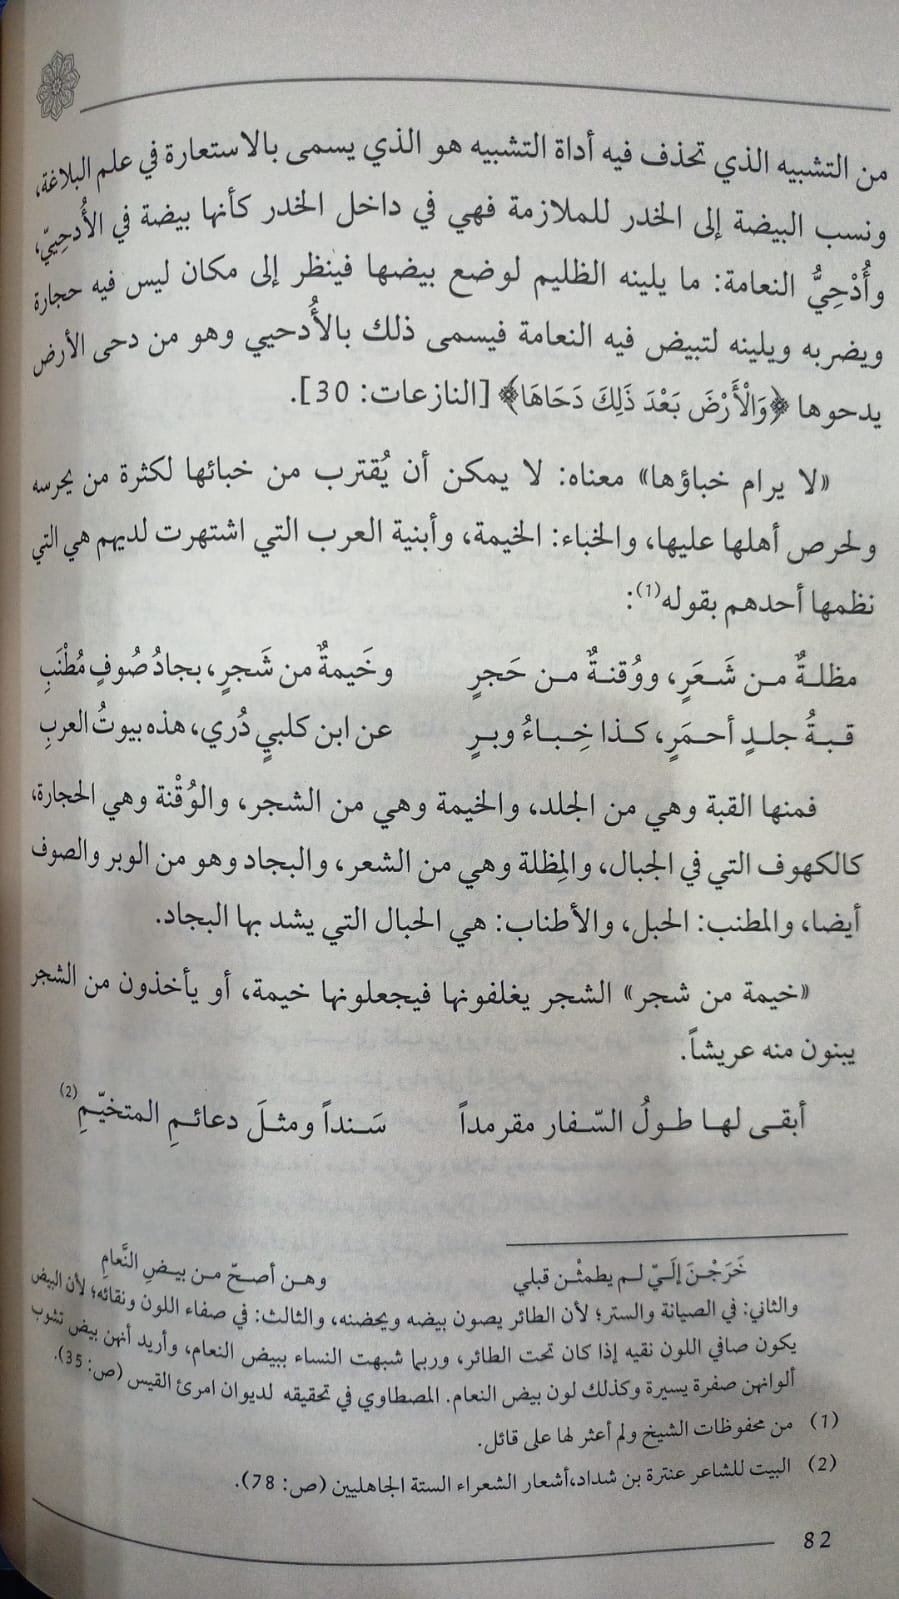 من التشبيه الذي تحذف فيه أداة التشبيه هو الذي يسمى بالاستعارة في علم البلاغة،
ونسب البيضة إلى الخدر للملازمة فهي في داخل الخدر كأنها بيضة في الأُدحِييّ،
وأُدْحِيُّ النعامة: ما يلينه الظليم لوضع بيضها فينظر إلى مكان ليس فيه حجارة
ويضربه ويلينه لتبيض فيه النعامة فيسمى ذلك بالأُدحيي وهو من دحى الأرض
يدحوها ﴿وَالْأَرْضَ بَعْدَ ذَلِكَ دَحَاهَا﴾ [النازعات: 30].
«لا يرام خباؤها» معناه: لا يمكن أن يُقترب من خبائها لكثرة من يحرسه
ولحرص أهلها عليها، والخباء: الخيمة، وأبنية العرب التي اشتهرت لديهم هي التي
نظمها أحدهم بقوله(1):
مظلةٌ من شَعَرٍ، ووُقنةٌ من حَجرٍ وخَيمةٌ من شَجرٍ، بجادُ صُوفٍ مُطْنَبِ
قبةُ جلدٍ أحمَرٍ، كذا خِباءُ وبرٍ عن ابن كلبيٍ دُري، هذه بيوتُ العربِ
فمنها القبة وهي من الجلد، والخيمة وهي من الشجر، والوُقْنة وهي الحجارة،
كالكهوف التي في الجبال، والمِظلة وهي من الشعر، والبجاد وهو من الوبر والصوف
أيضا، والمطنب: الحبل، والأطناب: هي الحبال التي يشد بها البجاد.
«خيمة من شجر» الشجر يغلفونها فيجعلونها خيمة، أو يأخذون من الشجر
يبنون منه عريشاً.
أبقى لها طولُ السّفار مقرمداً سَنداً ومثلَ دعائمِ المتخيّمِ(2)
خَرَجْنَ إلَيّ لم يطمثْن قبلي وهن أصحّ من بيضِ النَّعامِ
والثاني: في الصيانة والستر؛ لأن الطائر يصون بيضه ويحضنه، والثالث: في صفاء اللون ونقائه؛ لأن البيض
يكون صافي اللون نقيه إذا كان تحت الطائر، وربما شبهت النساء ببيض النعام، وأريد أنهن بيض تشوب
ألوانهن صفرة يسيرة وكذلك لون بيض النعام. المصطاوي في تحقيقه لديوان امرئ القيس (ص: 35).
(1) من محفوظات الشيخ ولم أعثر لها على قائل.
(2) البيت للشاعر عنترة بن شداد،أشعار الشعراء الستة الجاهليين (ص: 78).
82